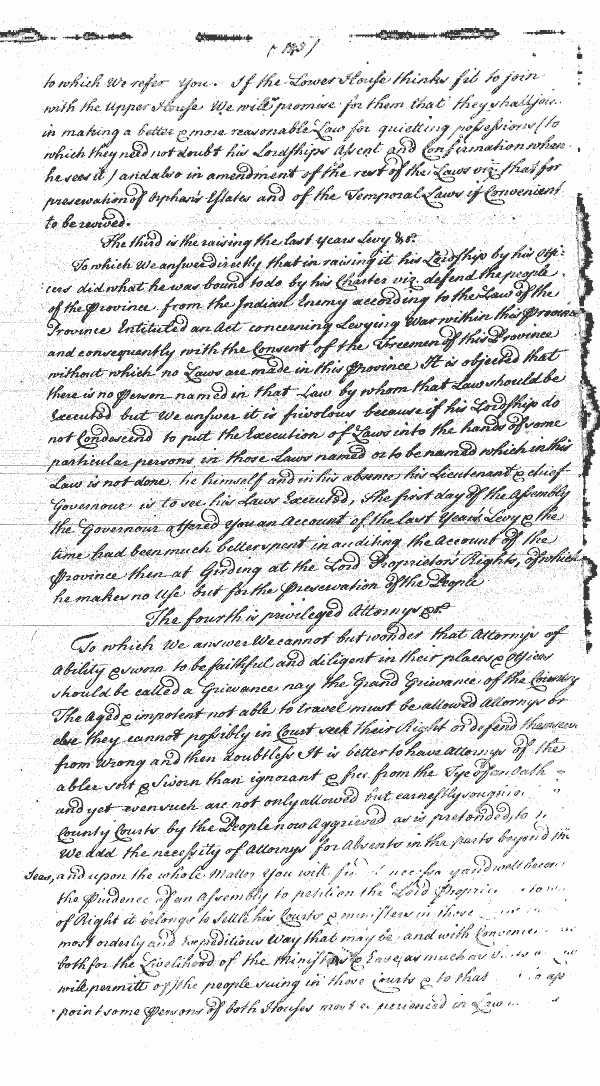 to which We refer You. If the Lower House thinks fit to join
with the Upper House We will promise for them that they shall join
in making a better & more reasonable Law for quietting possessions (to
which they need not doubt his Lordships Assent and Confirmation when
he sees it) and also in amendment of the rest of the Laws viz that for
preservation of Orphan's Estates and of the Temporal Laws if Convenient
to be revived.
The third is the raising the last years Levy &c.
To which We answer directly that in raising it his Lordship by his Offi-
cers did what he was bound to do by his Charter viz defend the people
of the Province from the Indian Enemy according to the Law of the
Province Entituled an Act concerning Levying War within this Province
and consequently with the Consent of the Freemen of this Province
without which no Laws are made in this Province It is objected that
there is no Person named in that Law by whom that Law should be
Executed but We answer it is frivolous because if his Lordship do
not Condescend to put the Execution of Laws into the hands of some
particular persons in those Laws named or to be named which in this
Law is not done, he himself and in his absence his Lieutenant & chief
Governour is to see his Laws Executed, The first day of the Assembly
the Governour offered You an Account of the last Years Levy & the
time had been much better spent in auditing the Account of the
Province then at Girding at the Lord Proprietor's Rights, of which
he makes no Use but for the Preservation of the People
The fourth is priviledged Attornys &c
To which We answer We cannot but wonder that Attornys of
Ability & sworn to be faithful and diligent in their places & Offices
should be called a Grievance nay the Grand Grievance of the Country
The Aged & impotent not able to travel must be allowed Attornys or
else they cannot possibly in Court seek their Right or defend themselves
from Wrong and then doubtless It is better to have Attornys of the
abler sort & Sworn than ignorant & free from the Tye of an Oath
and yet even such are not only allowed but earnestly sought in
County Courts by the People now Aggrieved as is pretended, to
We add the necessity of Attornys for Absents in the parts beyond the
Seas, and upon the whole Matter You will find necessary and well becoming
the Prudence of an Assembly to petition the Lord Proprie
of Right it belongs to settle his Courts & ministers in those
most orderly and Expeditious Way that may be and with Convenience
both for the Livelihood of the Ministers & Ease as much as
will permitt of the people suing in those Courts & to that ap
point some Persons of both Houses most experienced in Law